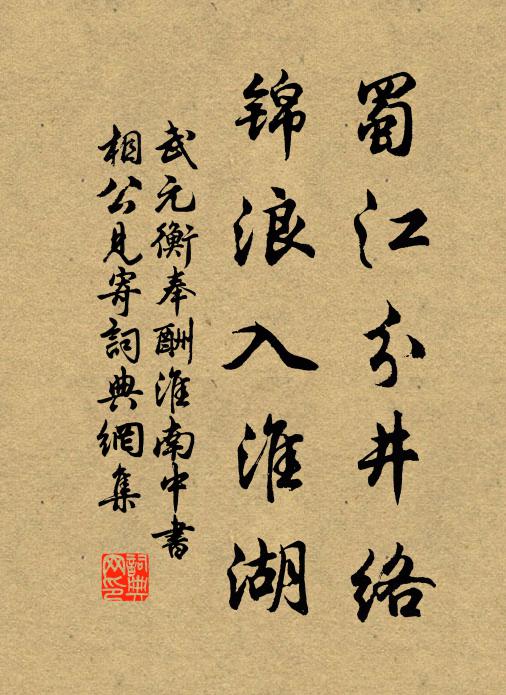 蜀江分井络
锦浪入淮湖
武元衡奉酬淮南中書
相公見寄詞典網集
詞典
网印